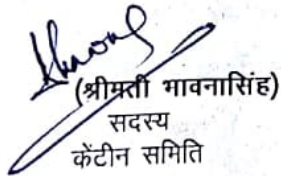 (श्रीमती भावनासिंह)
सदस्य
केंटीन समिति